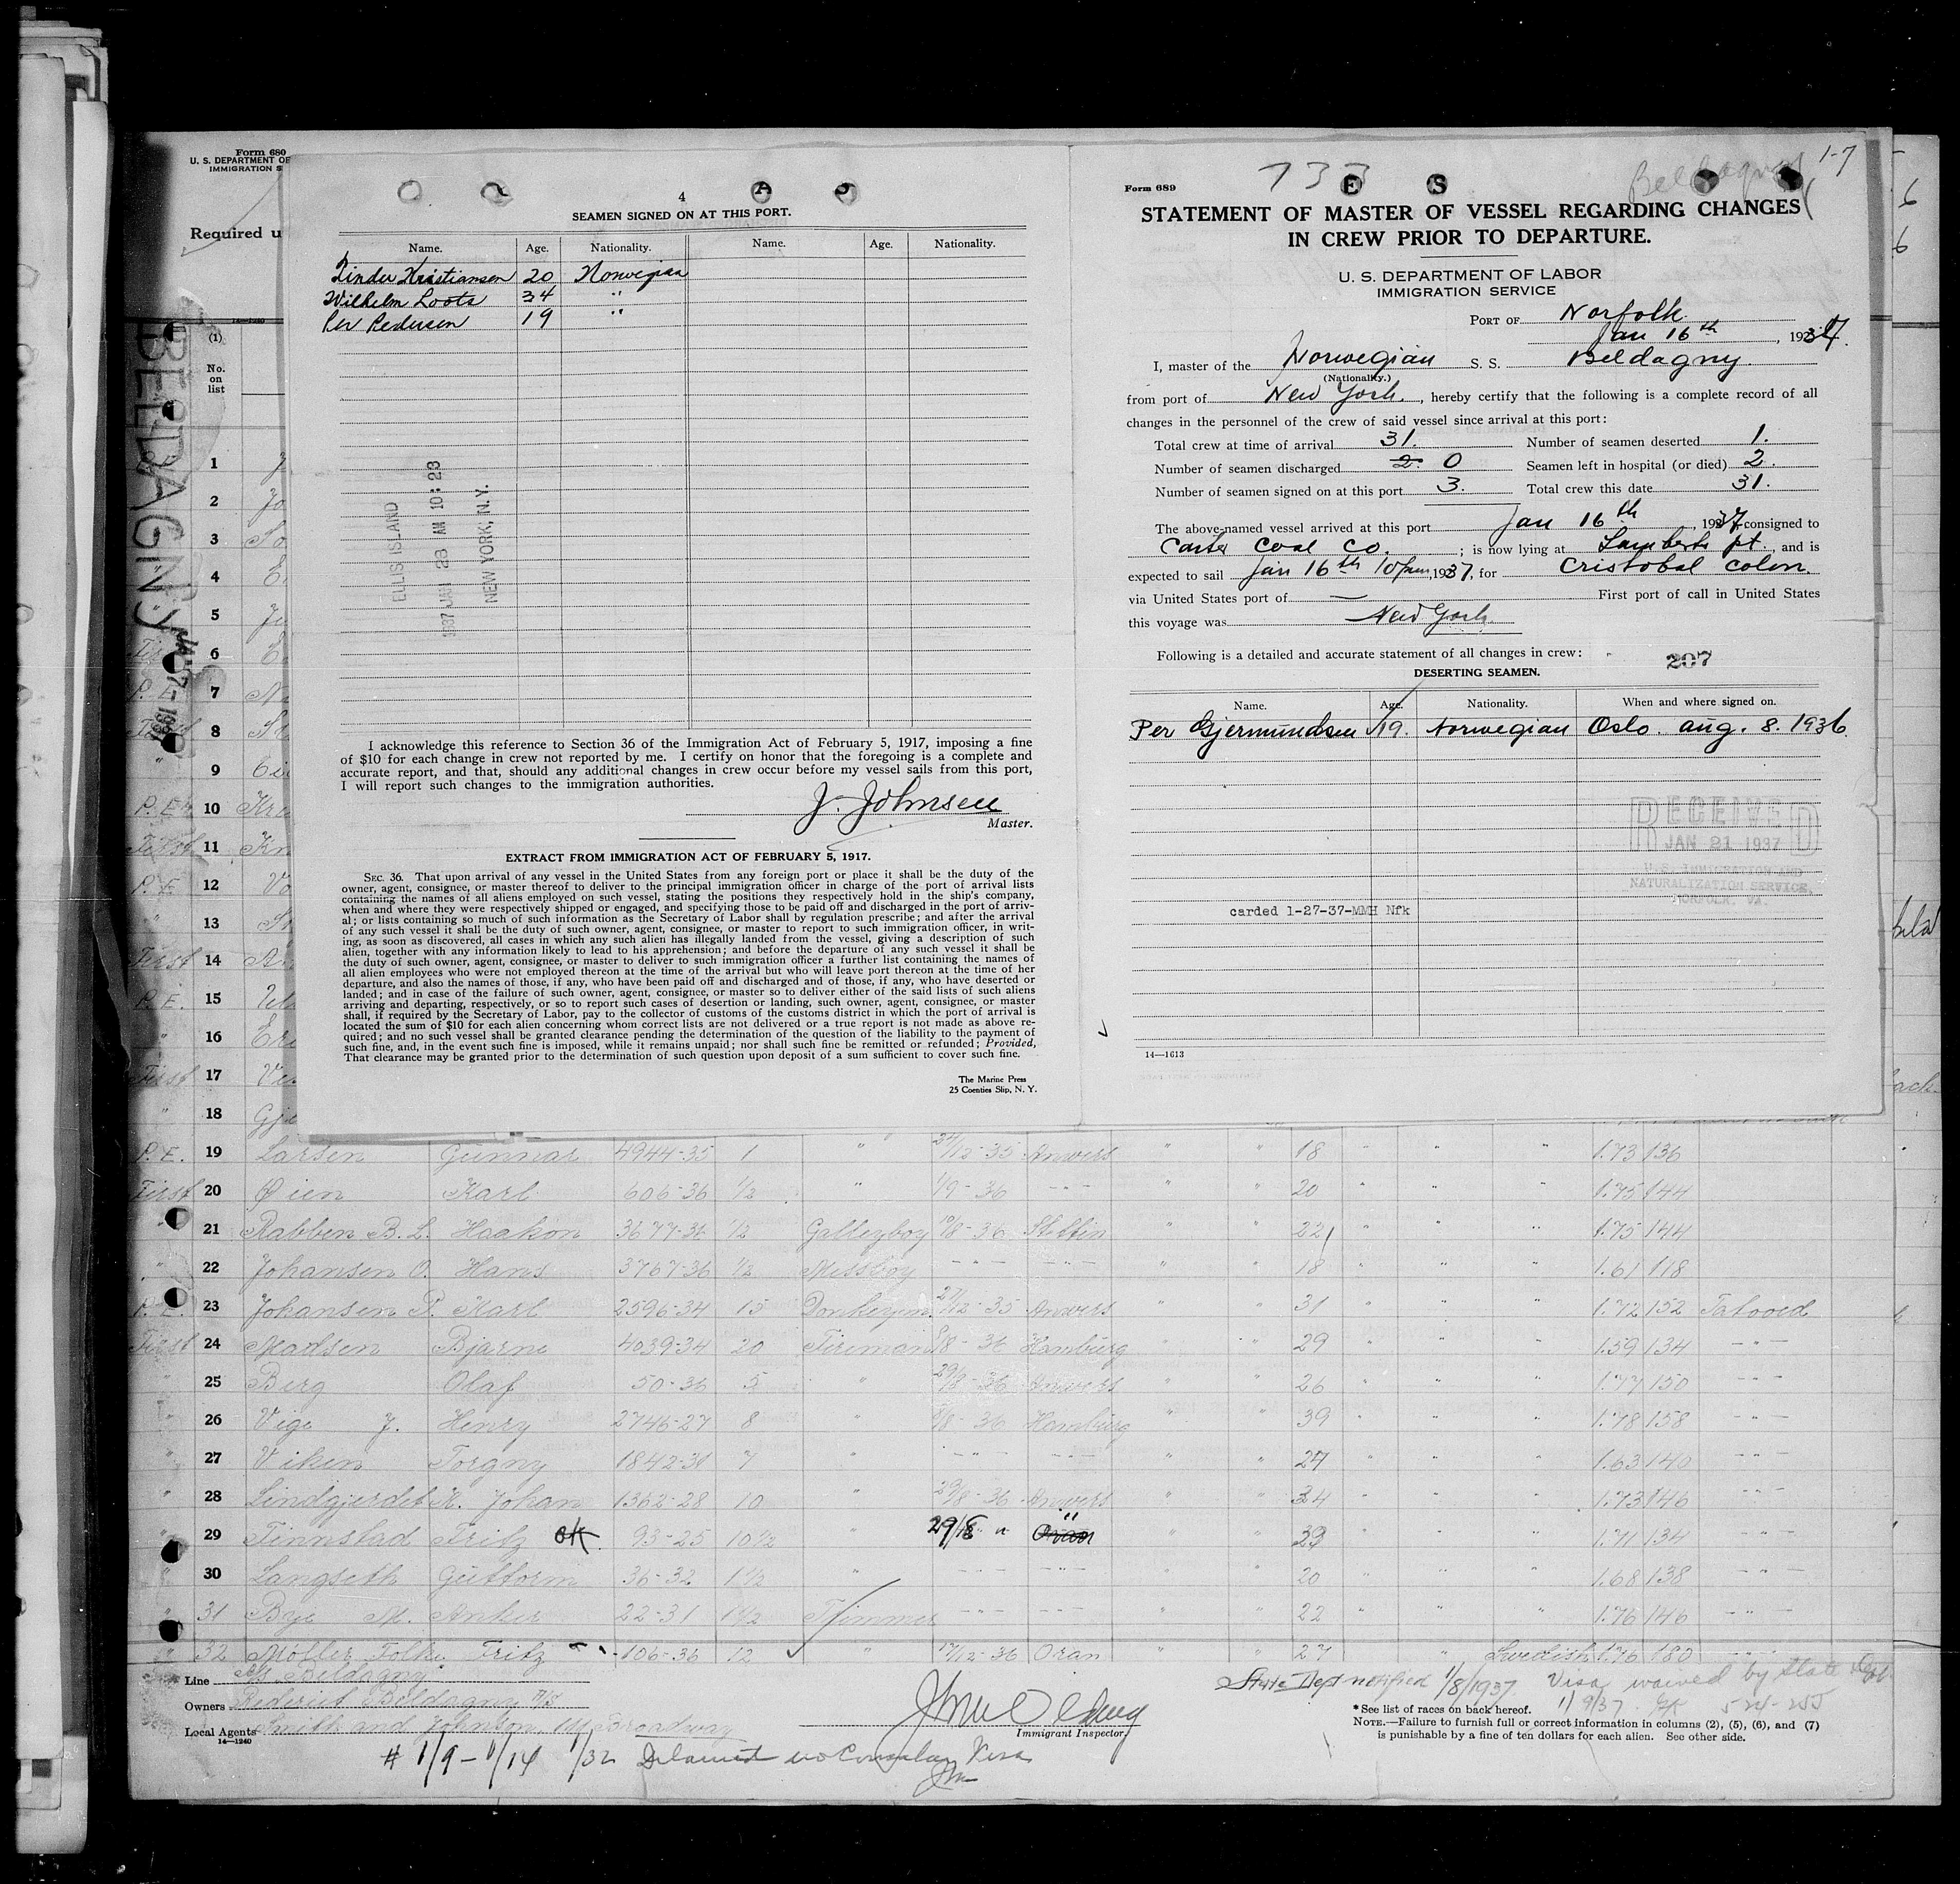 Form 680
U. S. DEPARTMENT OF
IMMIGRATION S
Required u
14—1240
(1)
No.
on
list
BELDAGNY
JAN 7-1937
4
SEAMEN SIGNED ON AT THIS PORT.
Name. Age. Nationality. Name. Age. Nationality.
Kristiansen 20 Norwegian
Wilhelm Loots 34 "
Per Pedersen 19 "
ELLIS ISLAND
1937 JAN 23 AM 10:23
NEW YORK, N.Y.
I acknowledge this reference to Section 36 of the Immigration Act of February 5, 1917, imposing a fine
of $10 for each change in crew not reported by me. I certify on honor that the foregoing is a complete and
accurate report, and that, should any additional changes in crew occur before my vessel sails from this port,
I will report such changes to the immigration authorities.
J. Johnsen
Master.
EXTRACT FROM IMMIGRATION ACT OF FEBRUARY 5, 1917.
SEC. 36. That upon arrival of any vessel in the United States from any foreign port or place it shall be the duty of the
owner, agent, consignee, or master thereof to deliver to the principal immigration officer in charge of the port of arrival lists
containing the names of all aliens employed on such vessel, stating the positions they respectively hold in the ship's company,
when and where they were respectively shipped or engaged, and specifying those to be paid off and discharged in the port of arriv-
al; or lists containing so much of such information as the Secretary of Labor shall by regulation prescribe; and after the arrival
of any such vessel it shall be the duty of such owner, agent, consignee, or master to report to such immigration officer, in writ-
ing, as soon as discovered, all cases in which any such alien has illegally landed from the vessel, giving a description of such
alien, together with any information likely to lead to his apprehension; and before the departure of any such vessel it shall be
the duty of such owner, agent, consignee, or master to deliver to such immigration officer a further list containing the names of
all alien employees who were not employed thereon at the time of the arrival but who will leave port thereon at the time of her
departure, and also the names of those, if any, who have been paid off and discharged and of those, if any, who have deserted or
landed; and in case of the failure of such owner, agent, consignee, or master so to deliver either of the said lists of such aliens
arriving and departing, respectively, or so to report such cases of desertion or landing, such owner, agent, consignee, or master
shall, if required by the Secretary of Labor, pay to the collector of customs of the customs district in which the port of arrival is
located the sum of $10 for each alien concerning whom correct lists are not delivered or a true report is not made as above re-
quired; and no such vessel shall be granted clearance pending the determination of the question of the liability to the payment of
such fine, and, in the event such fine is imposed, while it remains unpaid; nor shall such fine be remitted or refunded; Provided,
That clearance may be granted prior to the determination of such question upon deposit of a sum sufficient to cover such fine.
The Marine Press
25 Coenties Slip, N. Y.
Form 689
733
Beldagny 1-7
STATEMENT OF MASTER OF VESSEL REGARDING CHANGES
IN CREW PRIOR TO DEPARTURE.
U. S. DEPARTMENT OF LABOR
IMMIGRATION SERVICE
PORT OF Norfolk
Jan 16th, 1937.
I, master of the Norwegian S. S. Beldagny.
(Nationality.)
from port of New York, hereby certify that the following is a complete record of all
changes in the personnel of the crew of said vessel since arrival at this port:
Total crew at time of arrival 31. Number of seamen deserted 1.
Number of seamen discharged 2. 0 Seamen left in hospital (or died) 2.
Number of seamen signed on at this port 3. Total crew this date 31.
The above-named vessel arrived at this port Jan 16th, 1937, consigned to
Carter Coal Co.; is now lying at Lamberts pt., and is
expected to sail Jan 16th 10 pm, 1937, for Cristobal Colon.
via United States port of — First port of call in United States
this voyage was New York
Following is a detailed and accurate statement of all changes in crew:
207
DESERTING SEAMEN.
Name. Age. Nationality. When and where signed on.
Per Gjermundsen 19. Norwegian Oslo. aug. 8. 1936.
RECEIVED
JAN 21 1937
U.S. IMMIGRATION AND
NATURALIZATION SERVICE,
NORFOLK, VA.
carded 1-27-37-MMH Nfk
14—1613
1
2
3
4
5
6
P. E. 7
8
" 9
P. E. 10
First 11
P. E. 12
" 13
First 14
P. E. 15
" 16
First 17
" 18
P. E. 19 Larsen Gunnar 4944-35 1 " 24/12-35 Anvers " " 18 " " " 1.73 136
First 20 Øien Karl 606-36 1/2 " 1/9-36 -"- " " 20 " " " 1.75 144
" 21 Rabben B. L. Haakon 3677-36 1/2 Galleyboy 10/8-36 Stettin " " 22 " " " 1.75 144
" 22 Johansen O. Hans 3767-36 1/2 Messboy -"- -"- " " 18 " " " 1.61 118
P. E. 23 Johansen P. Karl 2596-34 15 Donkeym. 27/12-35 Anvers " " 31 " " " 1.72 152 Tatooed
First 24 Madsen Bjarne 4039-34 20 Fireman 8/8-36 Hamburg " " 29 " " " 1.59 134 -"-
" 25 Berg Olaf 50-36 5 " 29/8-36 Anvers " " 26 " " " 1.77 150 -"-
" 26 Vige J. Henry 2746-27 8 " /8-36 Hamburg " " 39 " " " 1.78 158 -"-
" 27 Viken Torgny 1842-31 7 " -"- -"- " " 24 " " " 1.63 140 -"-
" 28 Lindgjerdet K. Johan 1362-28 10 " 29/8-36 Anvers " " 34 " " " 1.73 146 -"-
" 29 Finnstad Fritz OK 93-25 10 1/2 " 29/8 " " Oran " " 39 " " " 1.71 134 -"-
" 30 Langseth Guttorm 36-32 1 1/2 " -"- -"- " " 20 " " " 1.68 138 -"-
" 31 Bye M. Anker 22-31 1 1/2 Trimmer -"- -"- " " 22 " " " 1.76 146 -"-
" 32 Møller Folke Fritz 106-36 12 " 17/12-36 Oran " " 27 " Swedish 1.76 180 -"-
Line S/S Beldagny
Owners Rederiet Beldagny A/S
Local Agents Smith and Johnson, Broadway
14—1240
Immigrant Inspector
State Dept notified 1/8/1937 Visa waived by State Dept
1/9/37
*See list of races on back hereof.
NOTE.—Failure to furnish full or correct information in columns (2), (5), (6), and (7)
is punishable by a fine of ten dollars for each alien. See other side.
# 1/9 – 1/14 1/32 Detained no Consular Visa